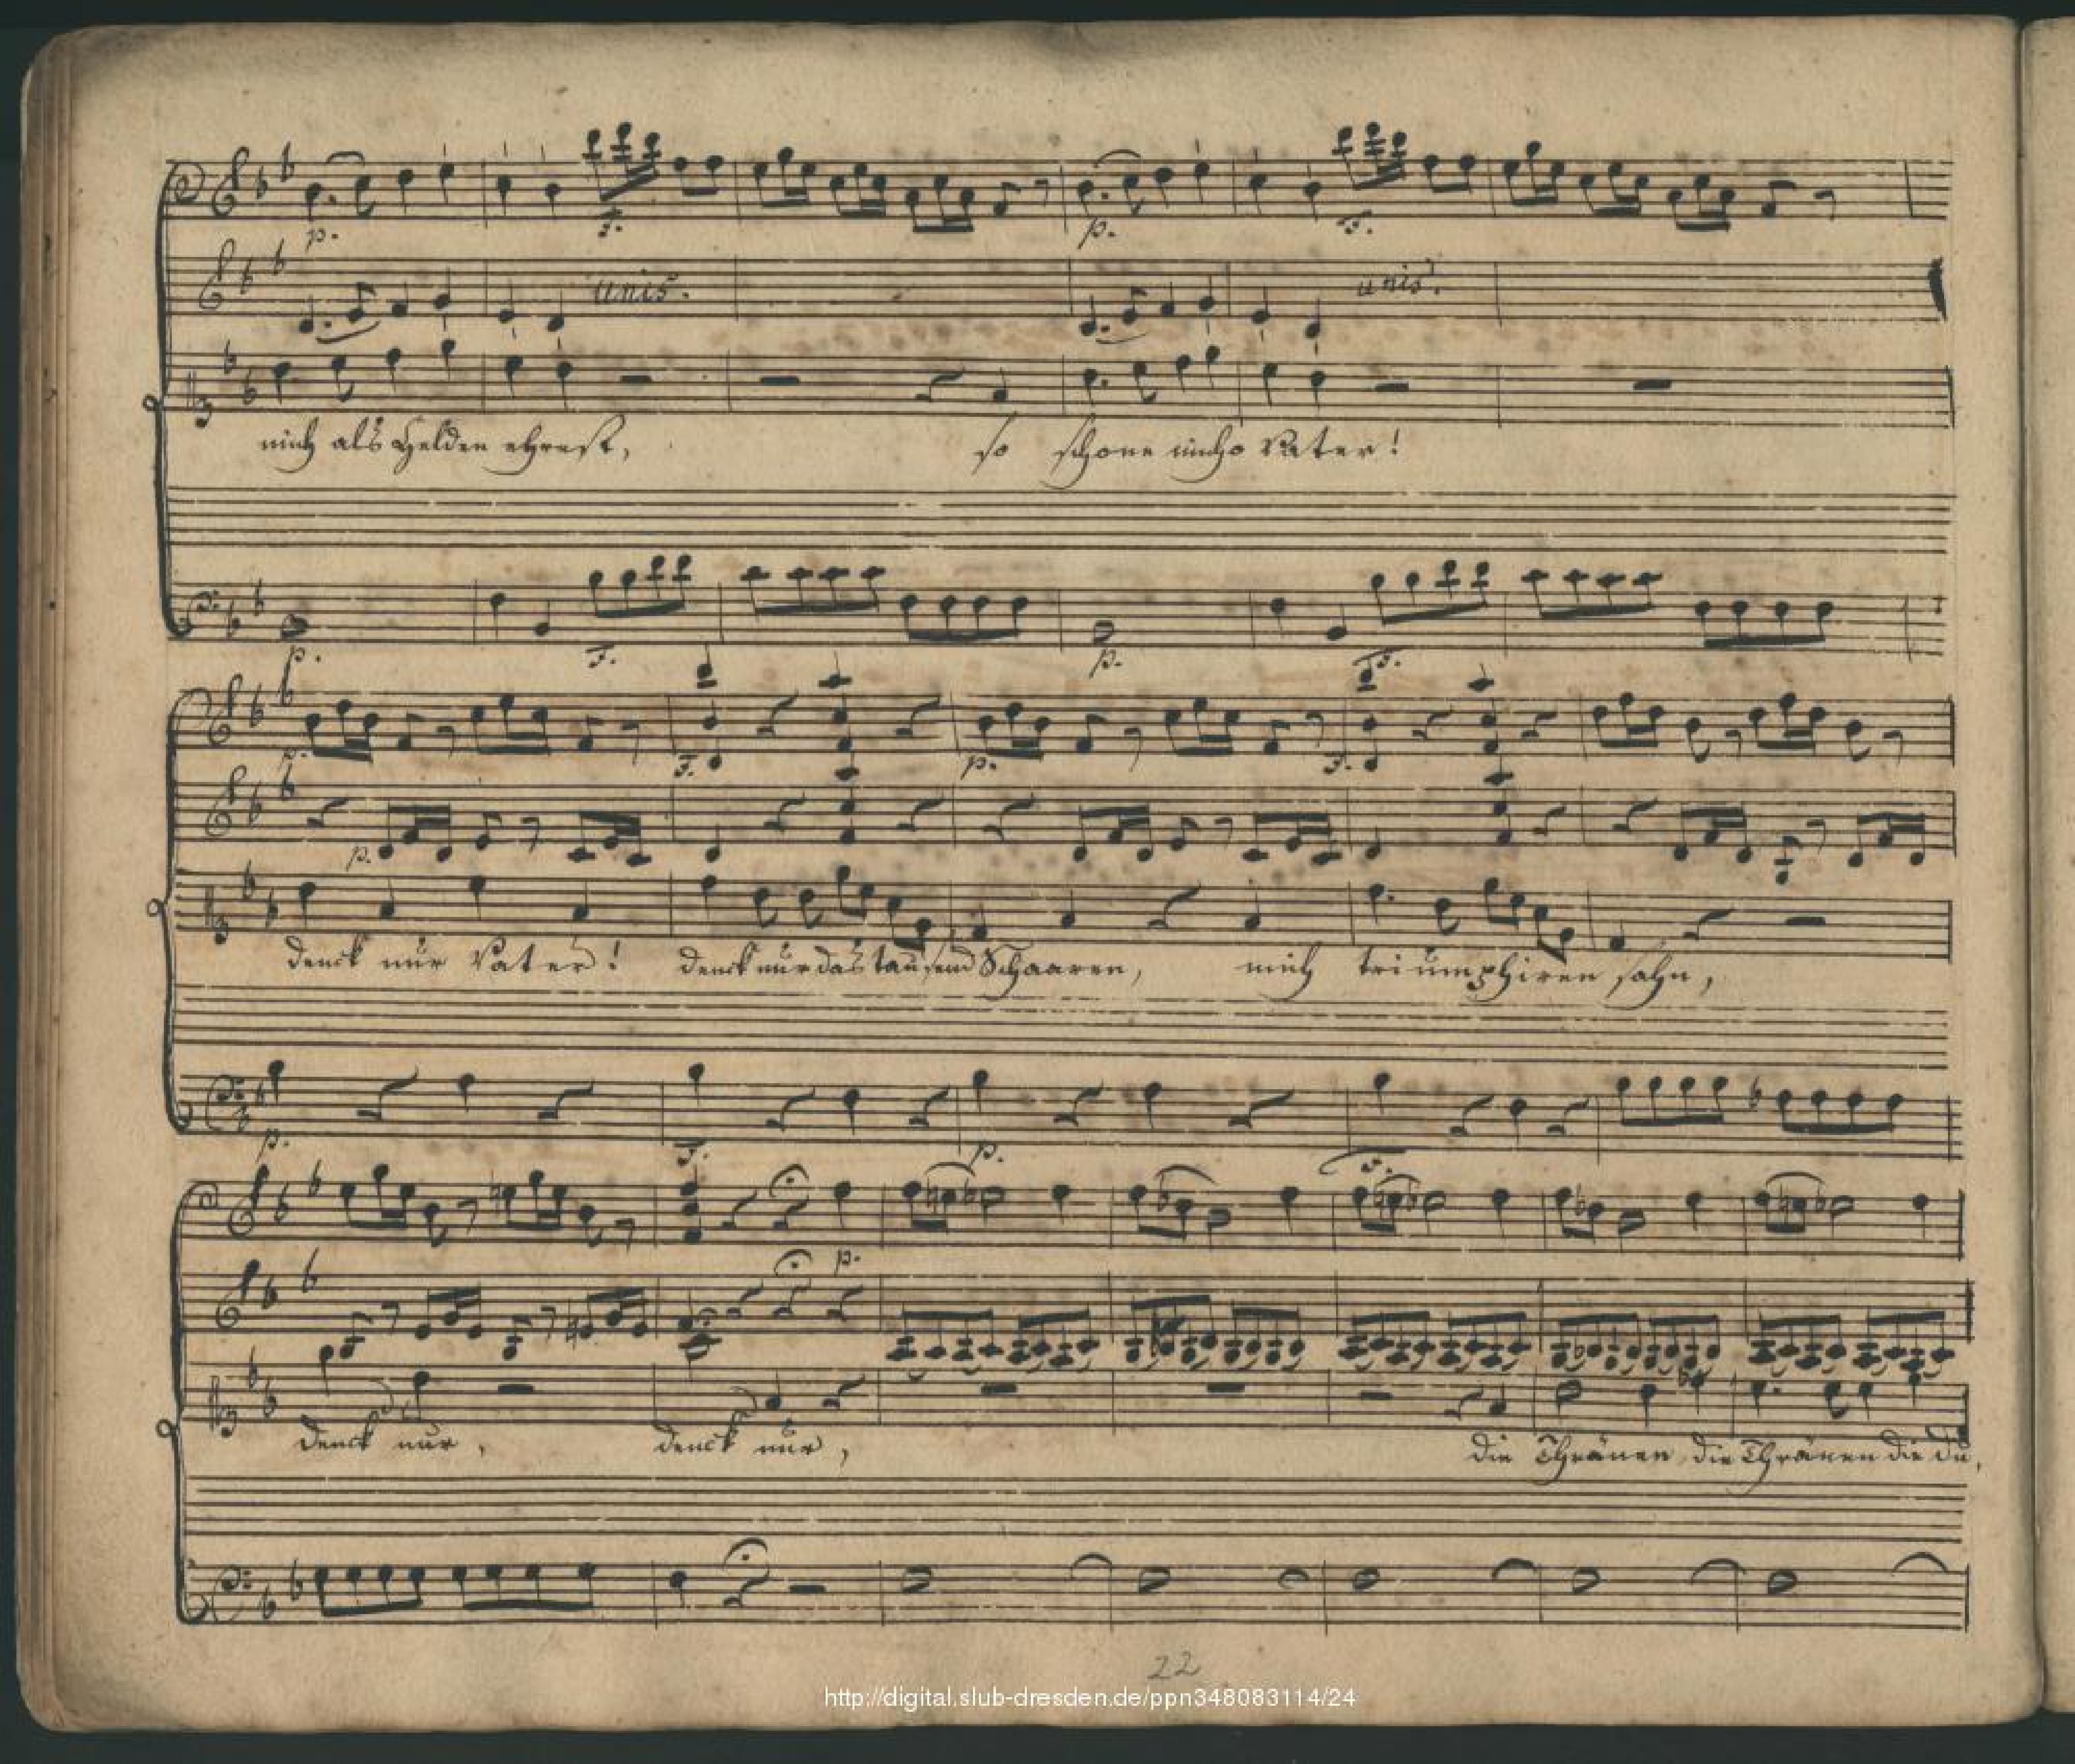 p. F. p. F.
unis. unis.
mich als Helden ehrest, so schone mich o Vater!
p. F. p. F.
p. F. p. F.
p.
denck nur Vater! denck nur das tausend Schaaren, mich triumphiren sahn,
p. F. p. F.
p.
denck nur, denck nur, die Thränen die Thränen die du,
22
http://digital.slub-dresden.de/ppn348083114/24